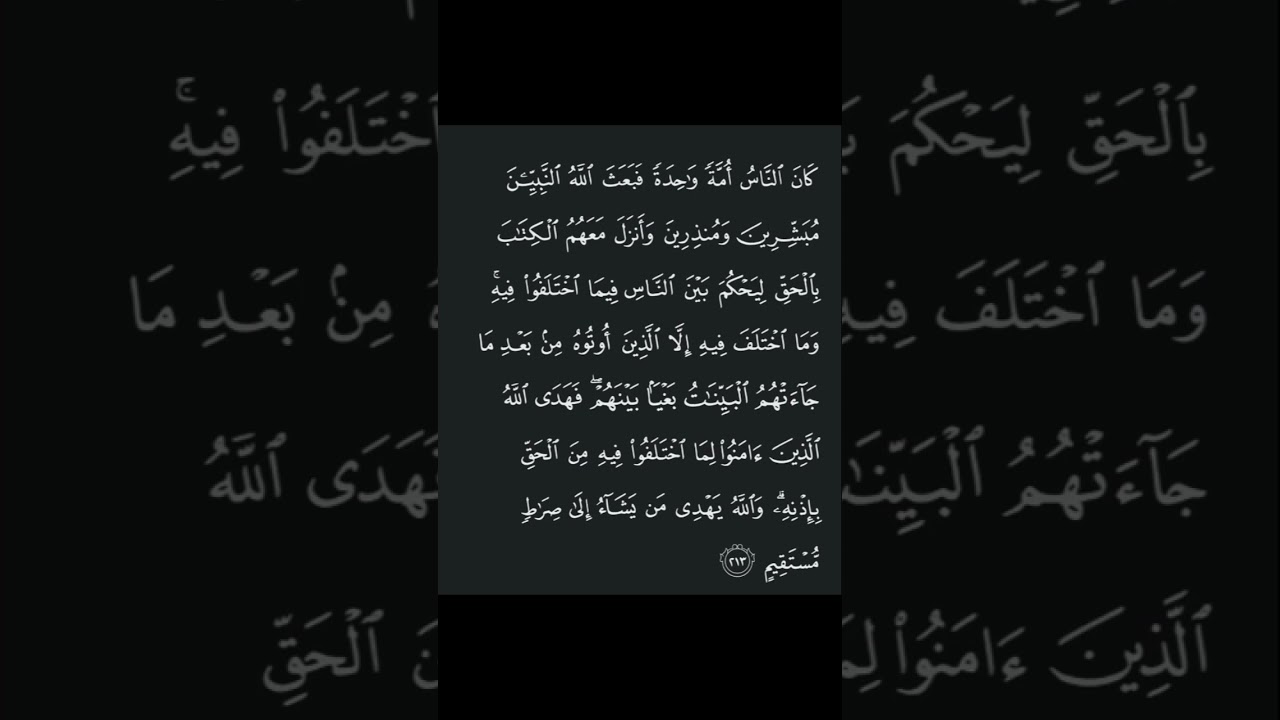 كَانَ ٱلنَّاسُ أُمَّةٗ وَٰحِدَةٗ فَبَعَثَ ٱللَّهُ ٱلنَّبِيِّـۧنَ
مُبَشِّرِينَ وَمُنذِرِينَ وَأَنزَلَ مَعَهُمُ ٱلۡكِتَٰبَ
بِٱلۡحَقِّ لِيَحۡكُمَ بَيۡنَ ٱلنَّاسِ فِيمَا ٱخۡتَلَفُواْ فِيهِۚ
وَمَا ٱخۡتَلَفَ فِيهِ إِلَّا ٱلَّذِينَ أُوتُوهُ مِنۢ بَعۡدِ مَا
جَآءَتۡهُمُ ٱلۡبَيِّنَٰتُ بَغۡيَۢا بَيۡنَهُمۡۖ فَهَدَى ٱللَّهُ
ٱلَّذِينَ ءَامَنُواْ لِمَا ٱخۡتَلَفُواْ فِيهِ مِنَ ٱلۡحَقِّ
بِإِذۡنِهِۦۗ وَٱللَّهُ يَهۡدِي مَن يَشَآءُ إِلَىٰ صِرَٰطٖ
مُّسۡتَقِيمٍ ٢١٣